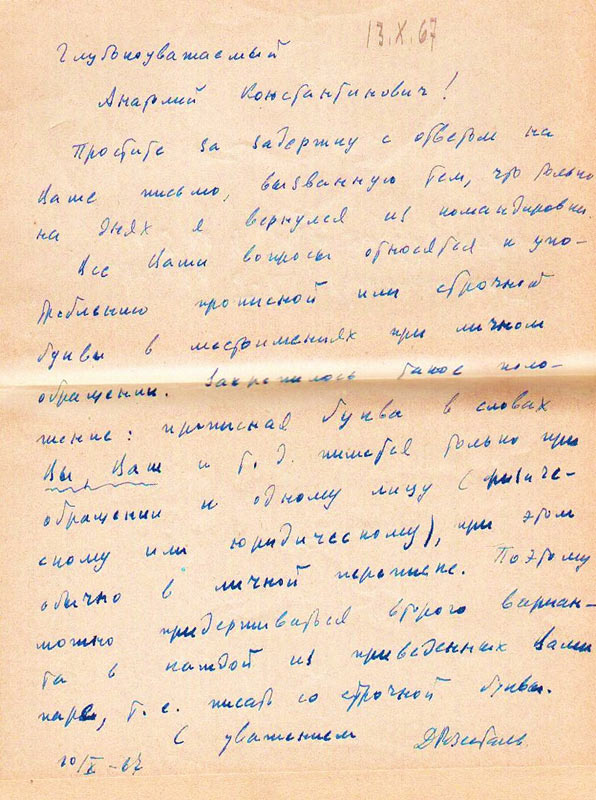 13.X.67
Глубокоуважаемый
Анатолий Константинович!
Простите за задержку с ответом на
Ваше письмо, вызванную тем, что только
на днях я вернулся из командировки.
Все Ваши вопросы относятся к упо-
треблению прописной или строчной
буквы в местоимениях при личном
обращении. Закрепилось такое поло-
жение: прописная буква в словах
Вы, Ваш и т. д. пишется только при
обращении к одному лицу (физиче-
скому или юридическому), при этом
обычно в личной переписке. Поэтому
можно придерживаться второго вариан-
та в каждой из приведенных Вами
пары, т. е. писать со строчной буквы.
С уважением ДРозенталь
10/X-67